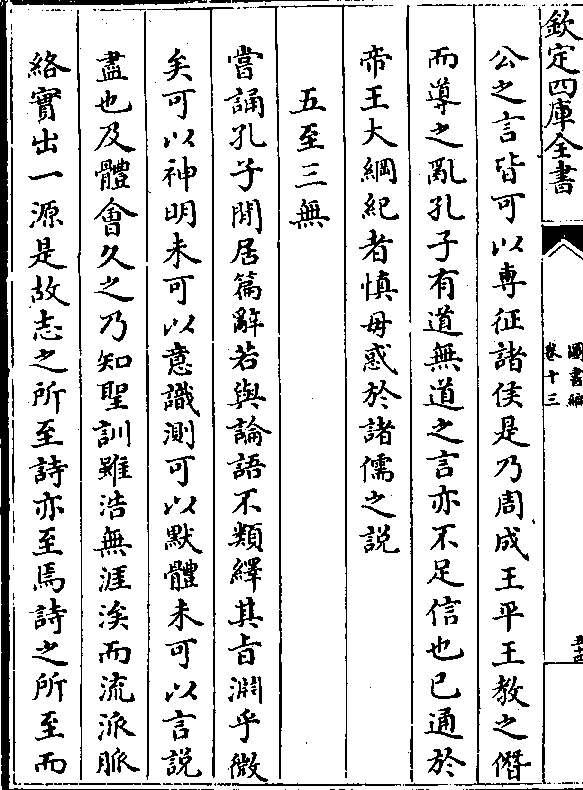 欽定四庫全書
圖書編
卷十三
公之言皆可以專征諸侯是乃周成王平王教之僭
而導之亂孔子有道無道之言亦不足信也已通於
帝王大綱紀者慎毋惑於諸儒之説
五至三無
嘗誦孔子閒居篇辭若與論語不類繹其旨淵乎微
矣可以神明未可以意識測可以默體未可以言説
盡也及體會久之乃知聖訓雖浩無涯涘而流派脈
絡實出一源是故志之所至詩亦至焉詩之所至而